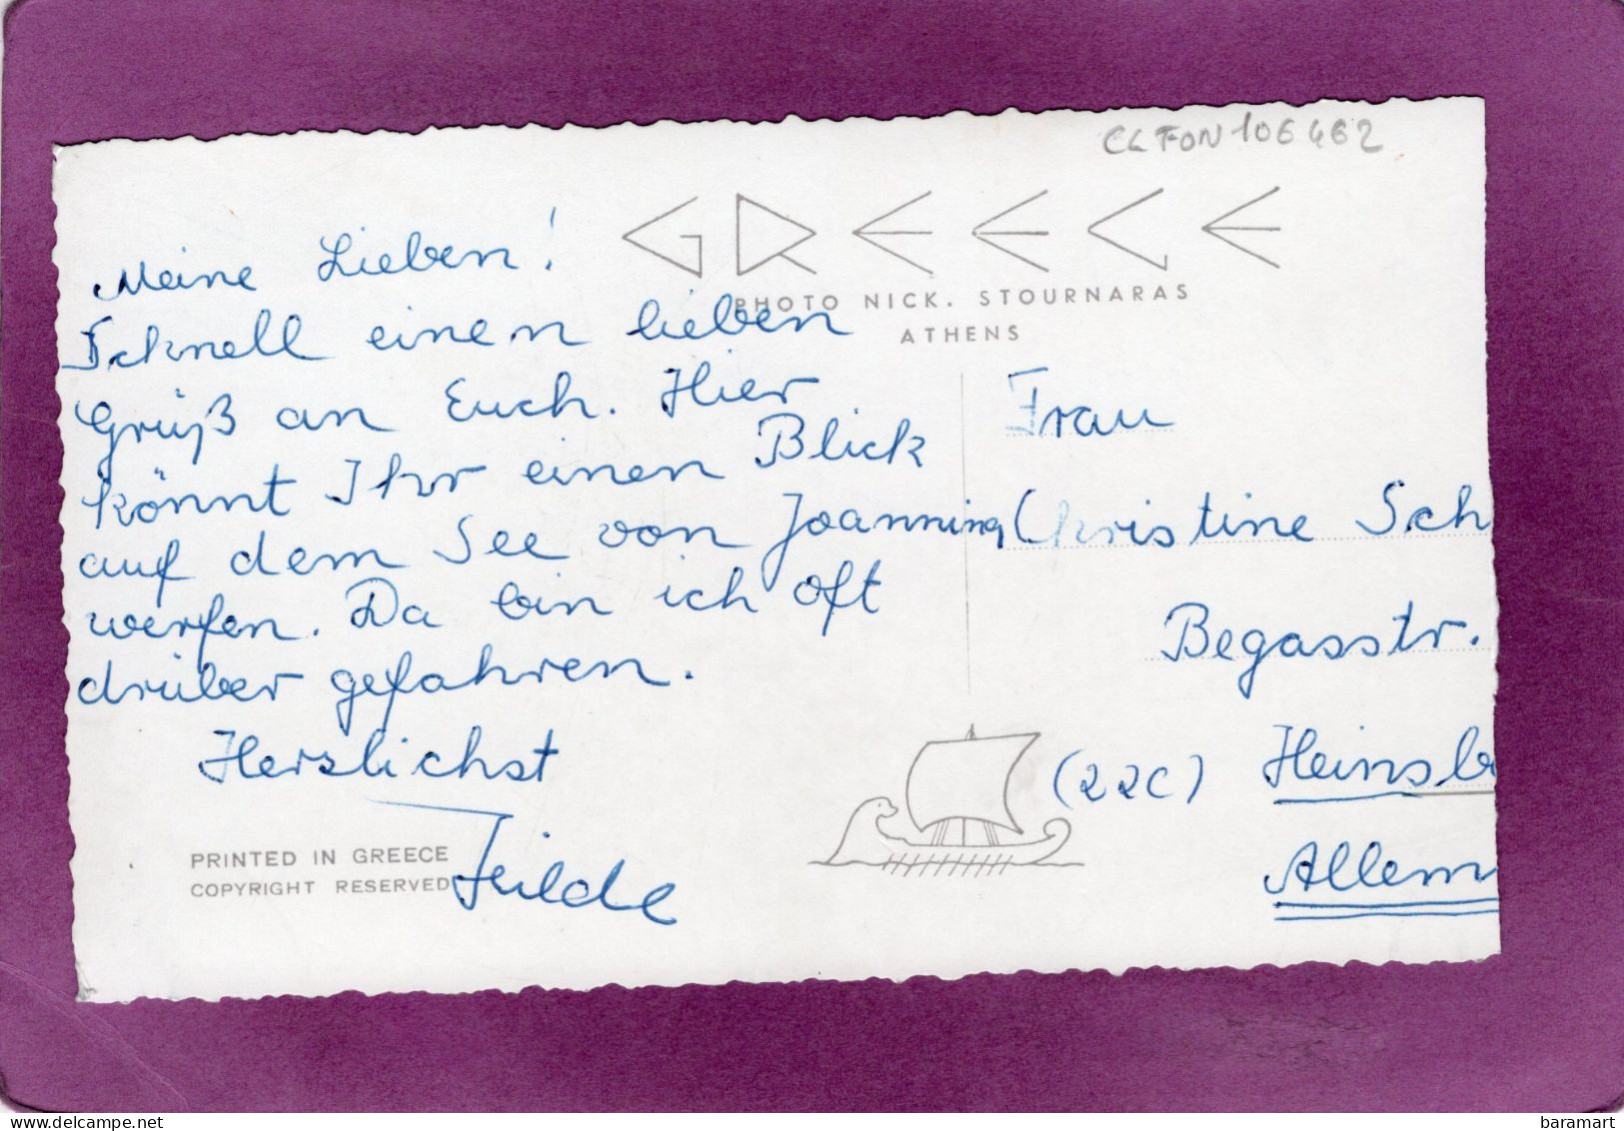 CLFON 106462
GREECE
PHOTO NICK. STOURNARAS
ATHENS
Meine Lieben!
Schnell einen lieben
Gruß an Euch. Hier
könnt Ihr einen Blick
auf dem See von Joannina
werfen. Da bin ich oft
drüber gefahren.
Herzlichst
Hilde
PRINTED IN GREECE
COPYRIGHT RESERVED
Frau
Christine Sch
Begasstr.
(22c) Heinsb
Allem
delcampe.net
baramart